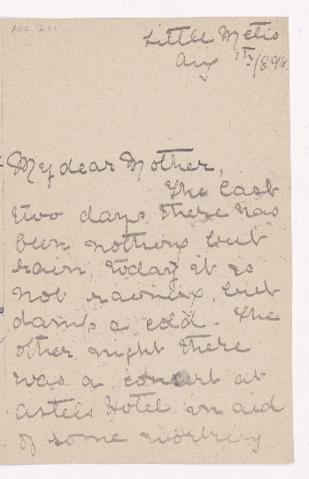 ACC 1211
Little Metis
Aug 7th /894.
My dear Mother,
The last
two days there has
been nothing but
rain, today it is
not raining, but
damp & cold. The
other night there
was a concert at
Astels Hotel in aid
of some working